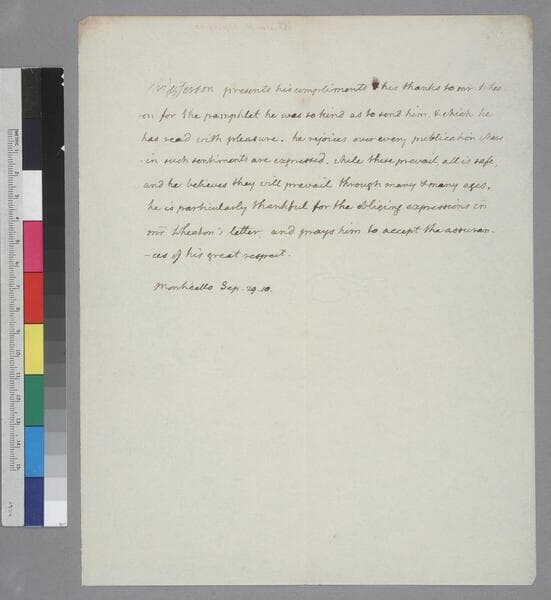 Jefferson presents his compliments & his thanks to mr Shec-
-on for the pamphlet he was so kind as to send him, & which he
has read with pleasure. he rejoices over every publication where-
in such sentiments are expressed. while these prevail, all is safe,
and he believes they will prevail through many & many ages.
he is particularly thankful for the obliging expressions in
mr letter, and prays him to accept the assuran-
-ces of his great respect.
Monticello Sep. 29. 10.